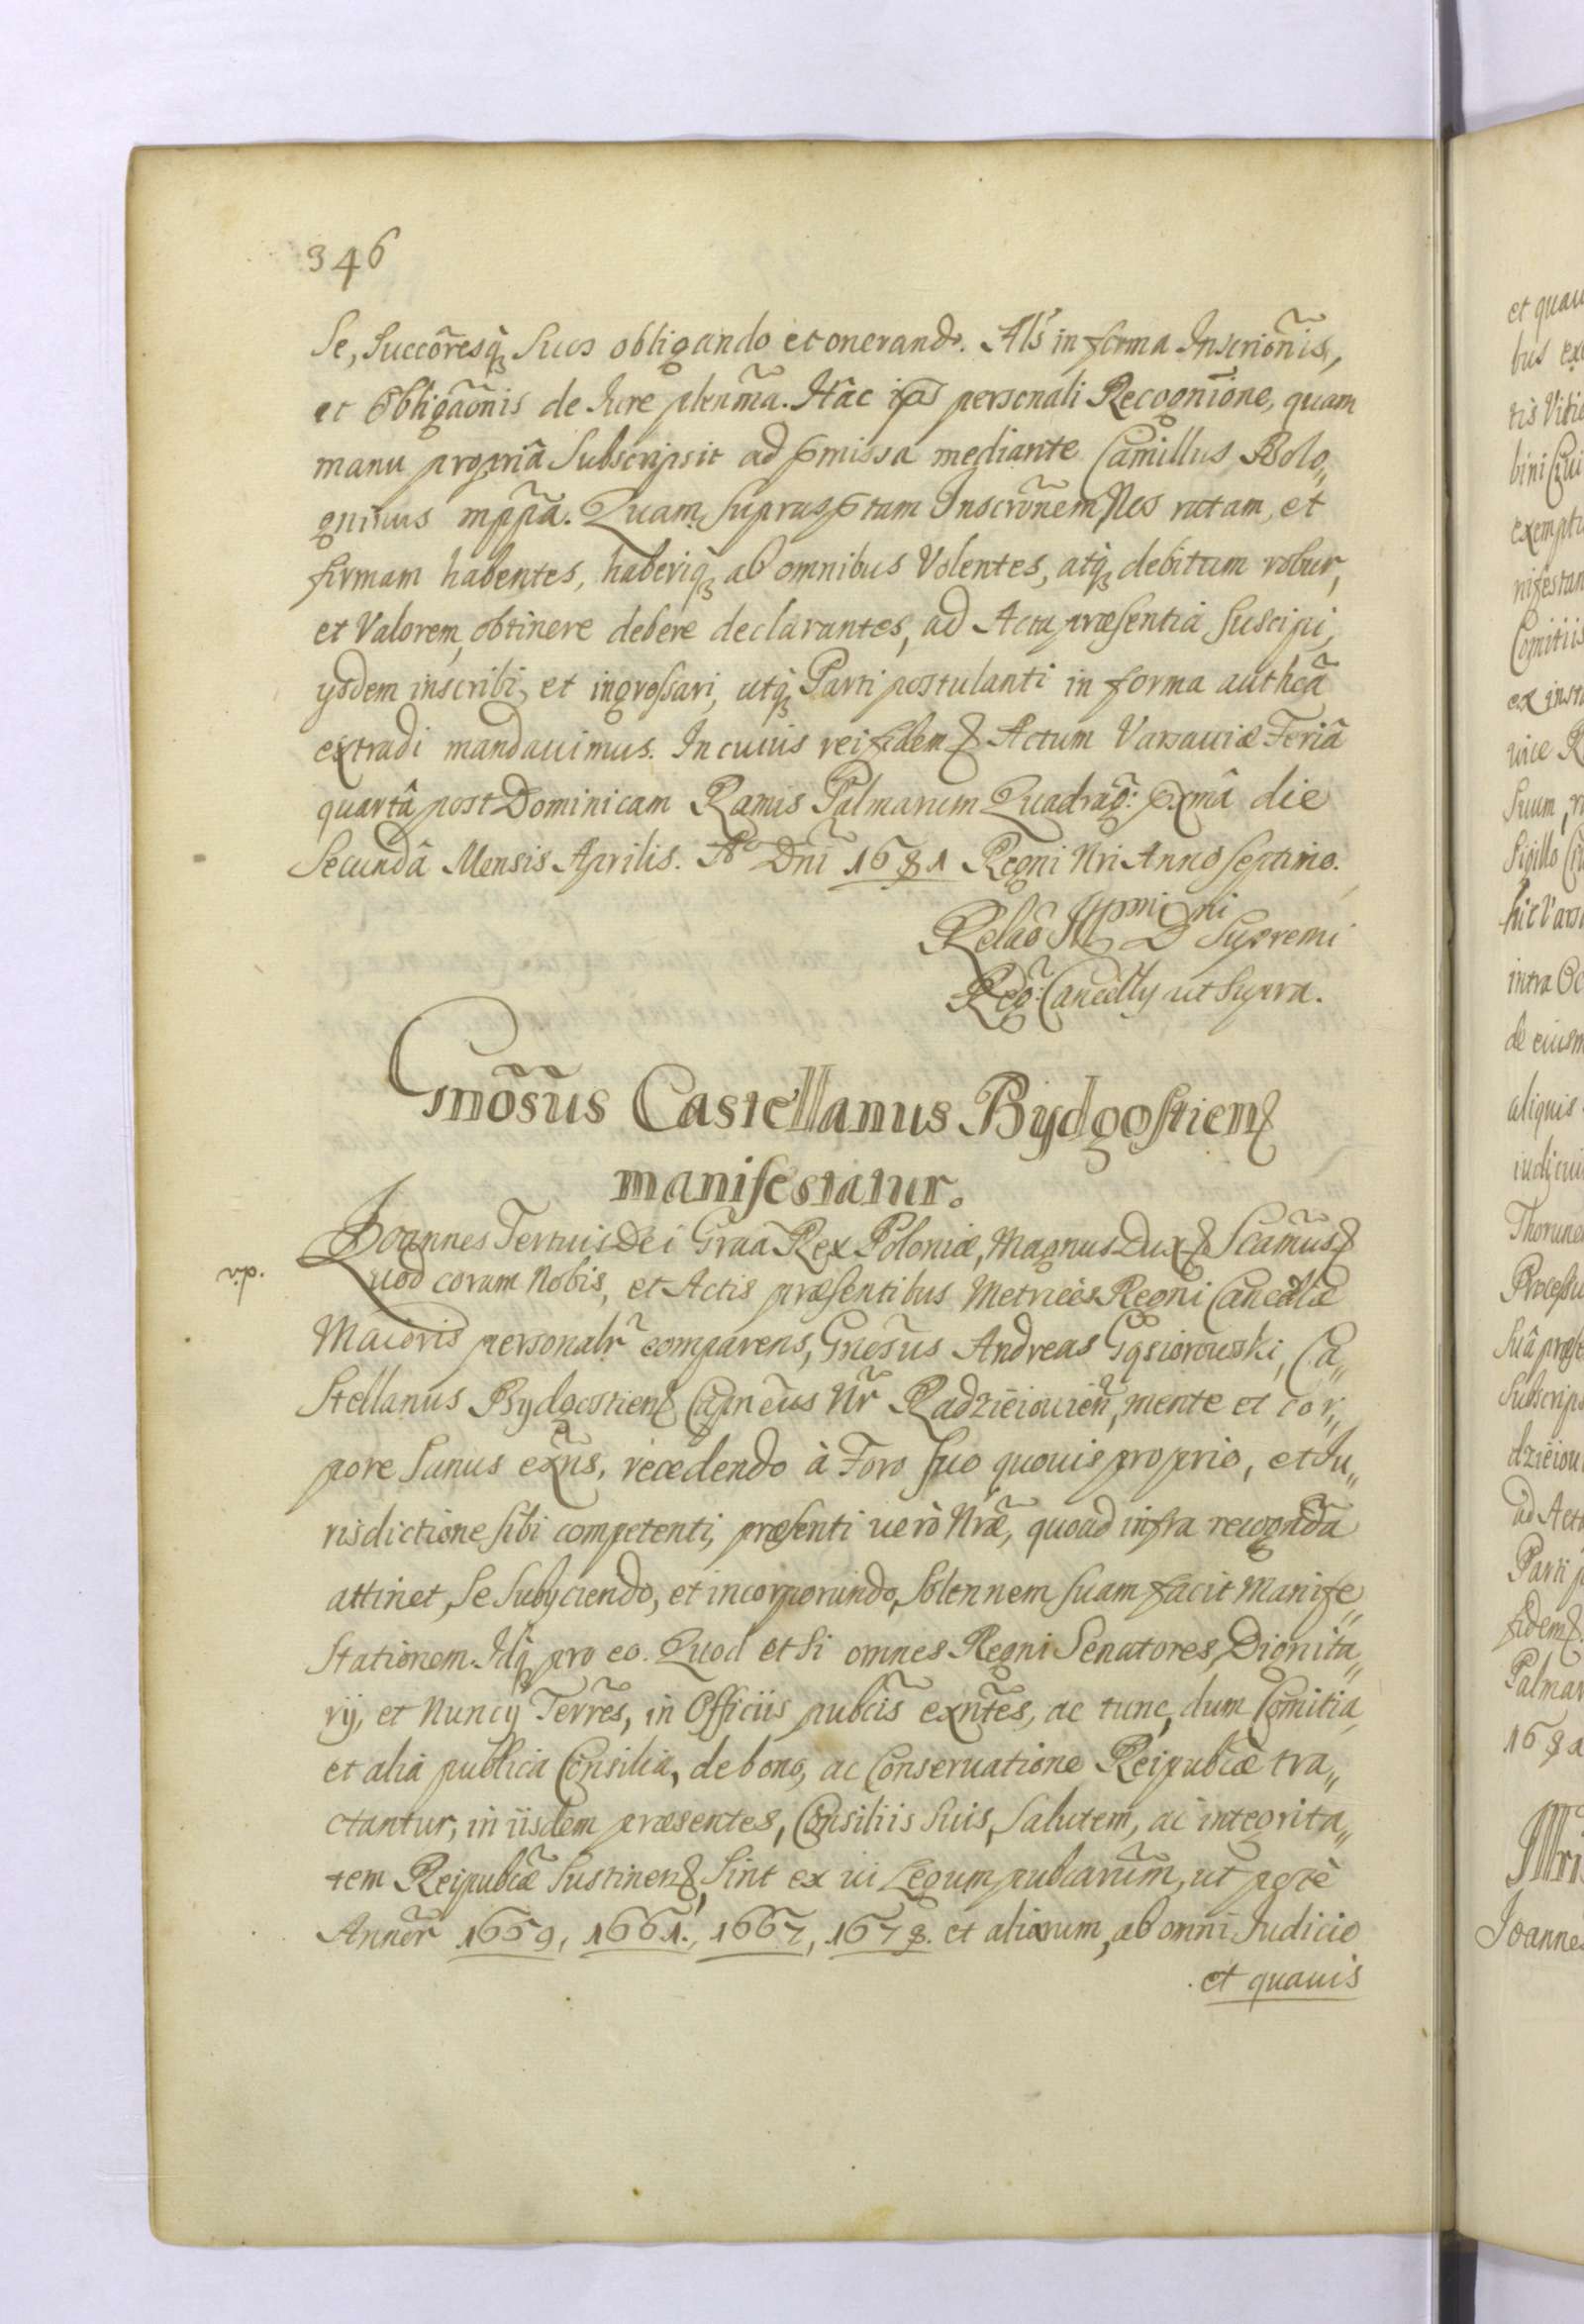 346
Se, Succõresq̃ Suos obligando et onerand. Als in forma Inscriõnis,
et Obligãonis de Iure plenm̃a. Hâc ip̃s personali Recognĩone, quam
manu propriâ Subscripsit ad p̃missa mediante Camillus Bolo„
gninus mpp̃a. Quam suprasp̃tam Inscrõnem Nos ratam, et
firmam habentes, haberiq̃ ab omnibus Volentes, atq̃ debitum robur,
et Valorem, obtinere debere declarantes, ad Acta præsentia suscipi,
ysdem inscribi, et ingrossari, utq̃ Parti postulanti in forma authcã
extradi mandauimus. In cuius rei fidem Actum Varsauiæ Feriâ
quartâ post Dominicam Ramis Palmarum Quadrag̃: p̃xmâ die
Secundâ Mensis Aprilis. Aº Dnĩ 1681 Regni Nri Anno septimo.
Relaõ Supremi
Reg̃: Cancelly ut Supra.
Gnõsũs Castellanus Bydgostien
manifestatur.
Joannes Tertuis Dei Graã Rex Poloniæ, Magnus Dux Scãmus
Quod coram Nobis, et Actis præsentibus Metrices Regni Cancellæ
Maioris personalr̃ comparens, Gnosũs Andreas Gąsiorowski, Ca„
Stellanus Bydgostien Capneũs Nr̃ Radzieiouien, mente et cor„
pore Sanus exñs, recedendo à Foro suo quouis proprio, et Iu„
risdictione sibi competenti, præsenti uerò Nræ̃, quoad infra recognda
attinet, Se Subyciendo, et incorporando, Solennem suam facit Manife„
Stationem. Idq̃ pro eo. Quod et si omnes Regni Senatores, Dignita„
rÿ, et Nuncÿ Terr̃es, in Officiis pubcĩs exñtes, ac tunc, dum Comitia
et alia publica Consilia, de bono, ac Conseruatione Reipubcæ̃ tra„
ctantur, in iisdem præsentes, Consiliis suis, Salutem, ac integrita„
tem Reipubcæ̃ Sustinen, Sint ex ui Legum pubcarum, ut potè
Annor̃ 1659, 1661., 1667, 1678. et aliorum, ab omni Judicio
et quauis